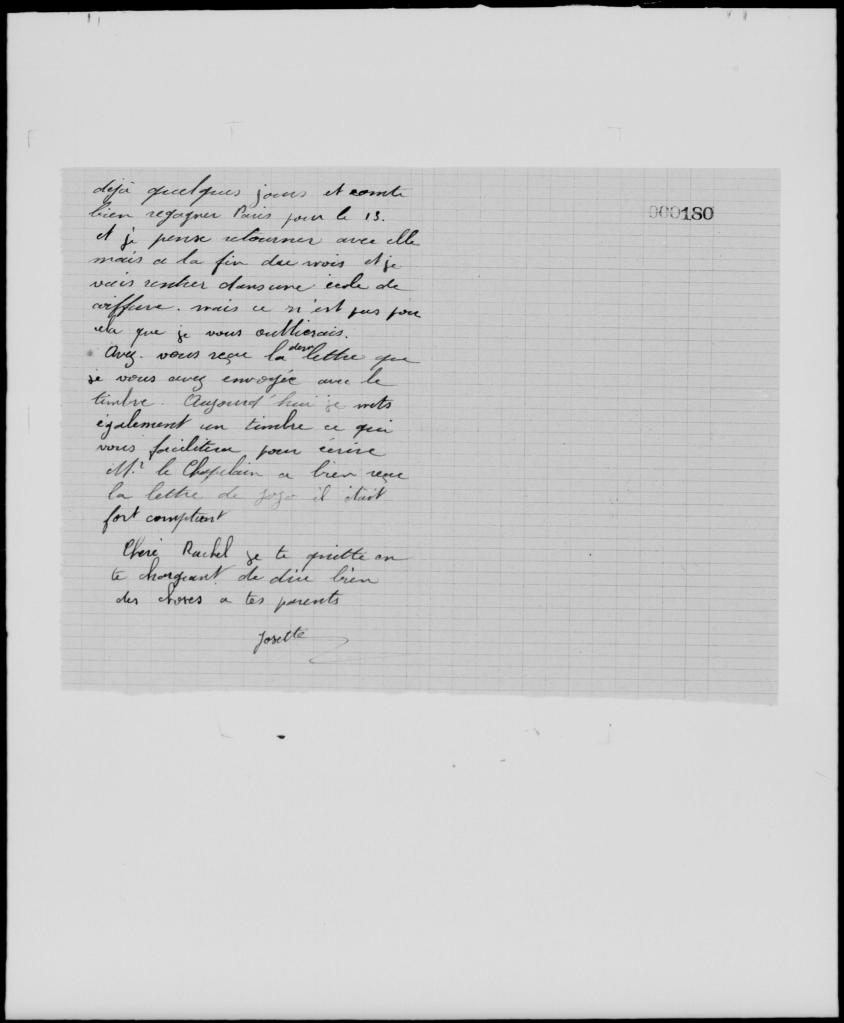 déjà quelques jours et comte
bien regagner Paris pour le 15.
000180
et je pense retourner avec elle
mais a la fin du mois et je
vais rentrer dans une école de
coiffure. mais ce n'est pas pour
cela que je vous oublierais.
Avez-vous reçue la lettre que
je vous avez envoyée avec le
timbre. Aujourd'hui je mets
également un timbre ce qui
vous facilitera pour écrire
Mr le Chapelain a bien reçue
la lettre de Jojo il était
fort comptent
Chère Rachel je te quitte en
te chargeant de dire bien
des choses a tes parents
Josette